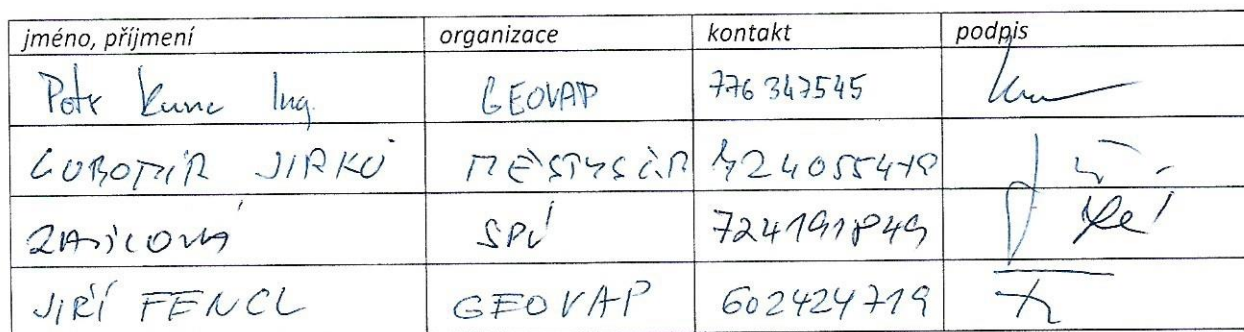 jméno, příjmení organizace kontakt podpis
Petr Kunc Ing. GEOVAP 776 347545
LUBOMÍR JIRKŮ MĚSTYS ČR 724055479
ZAJÍCOVÁ SPÚ 724191849
JIŘÍ FENCL GEOVAP 602424719